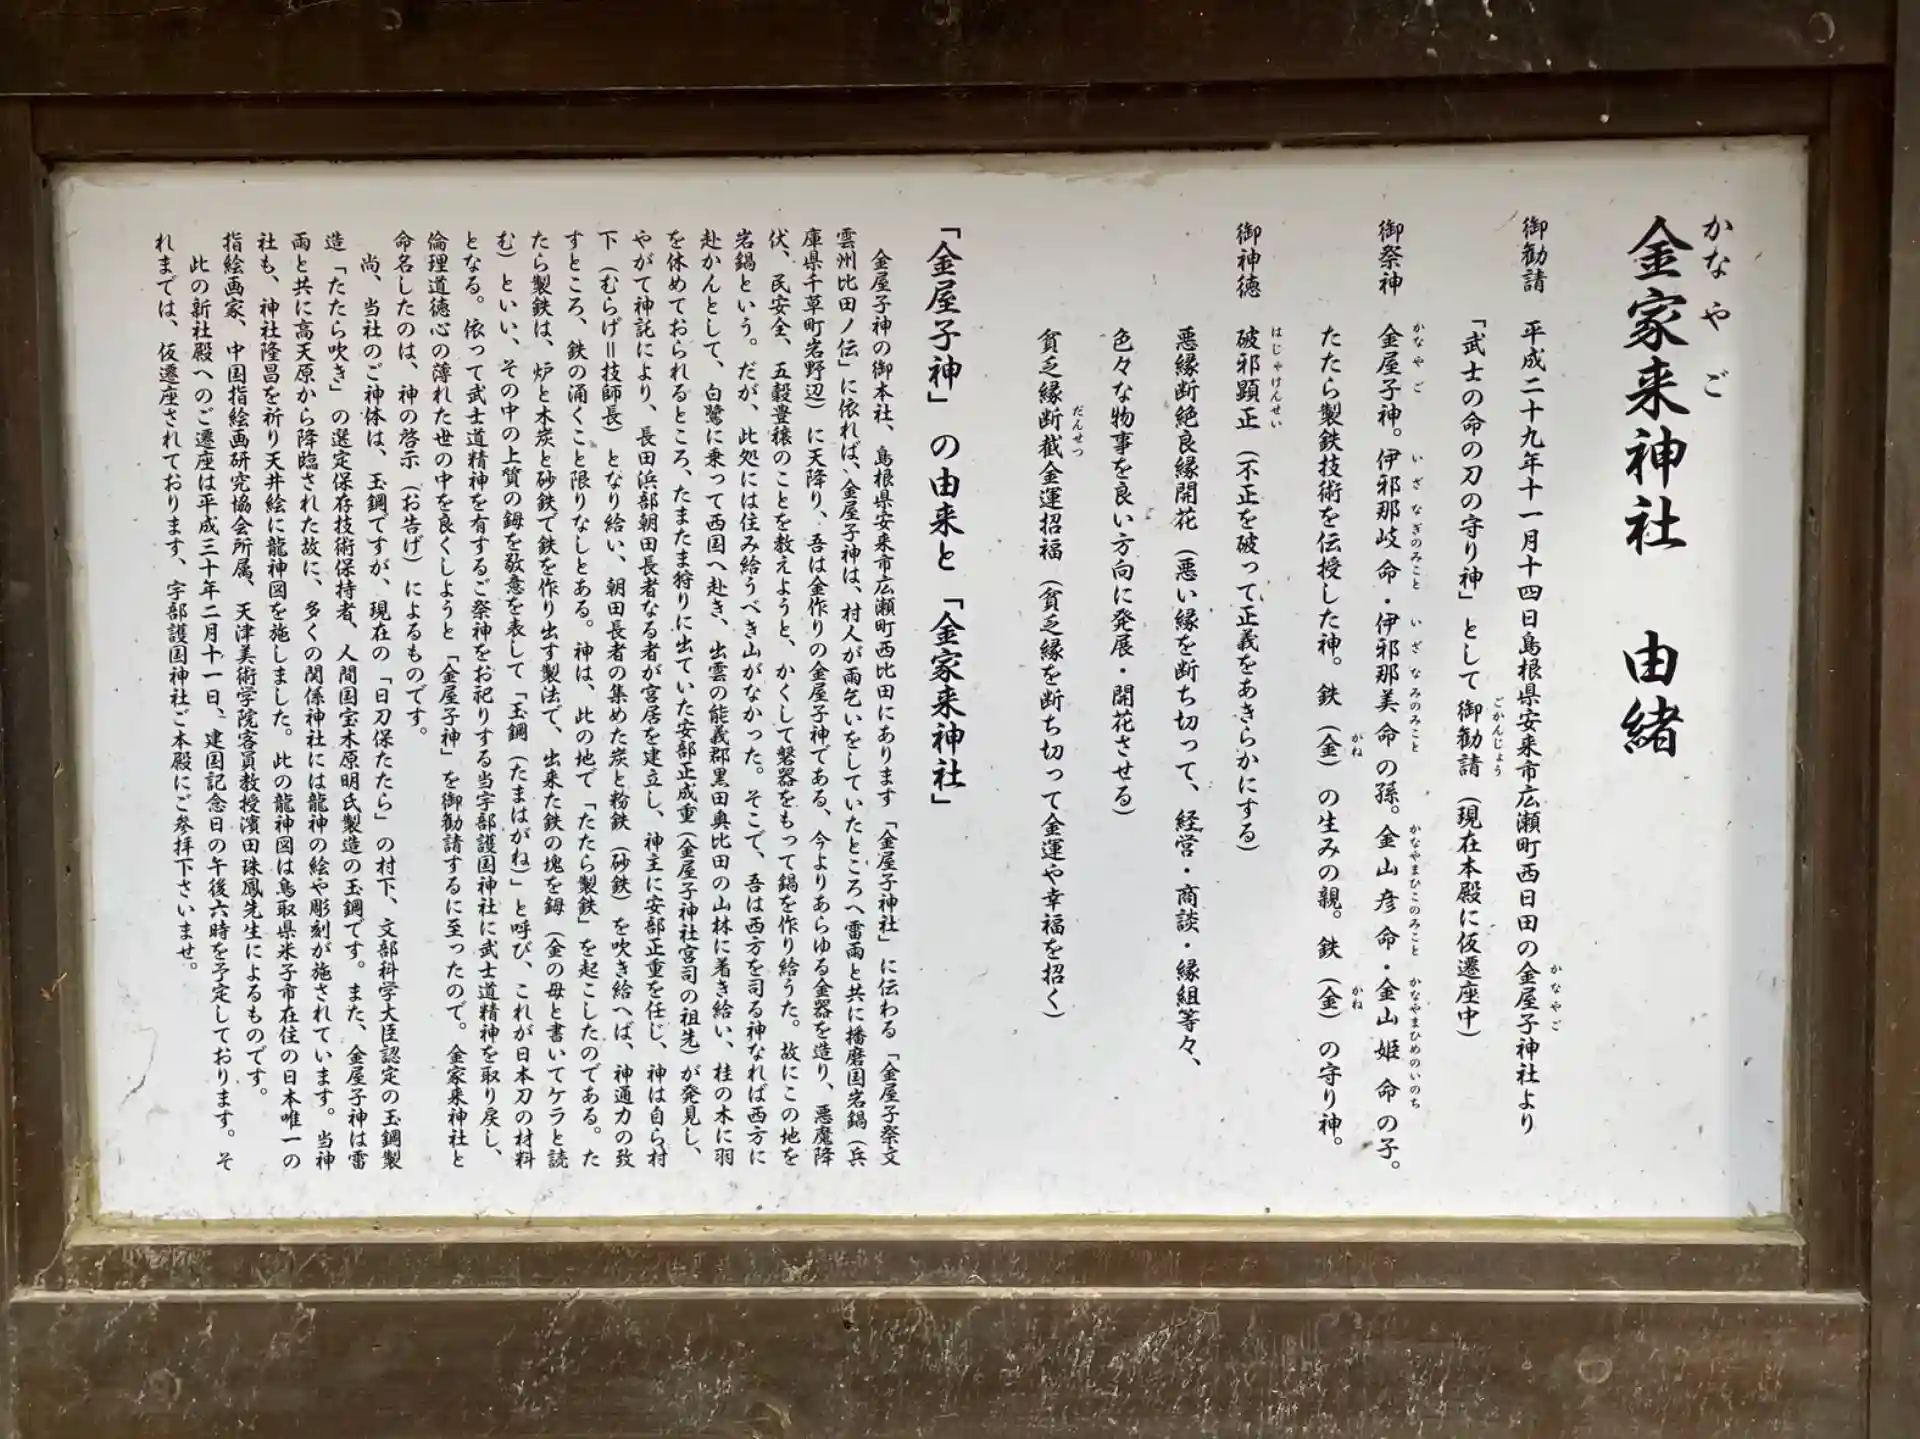 かなやご
金家来神社 由緒
御勧請 平成二十九年十一月十四日島根県安来市広瀬町西日田の金屋子神社より
かなやご
「武士の命の刀の守り神」として御勧請（現在本殿に仮遷座中）
ごかんじょう
御祭神 金屋子神。伊邪那岐命・伊邪那美命の孫。金山彦命・金山姫命の子。
かなやご いざなぎのみこと いざなみのみこと かなやまひこのみこと かなやまひめのいのち
たたら製鉄技術を伝授した神。鉄（金）の生みの親。鉄（金）の守り神。
かね かね
御神徳 破邪顕正（不正を破って正義をあきらかにする）
はじゃけんせい
悪縁断絶良縁開花（悪い縁を断ち切って、経営・商談・縁組等々、
色々な物事を良い方向に発展・開花させる）
貧乏縁断截金運招福（貧乏縁を断ち切って金運や幸福を招く）
だんせつ
「金屋子神」の由来と「金家来神社」
金屋子神の御本社、島根県安来市広瀬町西比田にあります「金屋子神社」に伝わる「金屋子祭文
雲州比田ノ伝」に依れば、金屋子神は、村人が雨乞いをしていたところへ雷雨と共に播磨国岩鍋（兵
庫県千草町岩野辺）に天降り、吾は金作りの金屋子神である、今よりあらゆる金器を造り、悪魔降
伏、民安全、五穀豊穣のことを教えようと、かくして磐器をもって鍋を作り給うた。故にこの地を
岩鍋という。だが、此処には住み給うべき山がなかった。そこで、吾は西方を司る神なれば西方に
赴かんとして、白鷺に乗って西国へ赴き、出雲の能義郡黒田奥比田の山林に着き給い、桂の木に羽
を休めておられるところ、たまたま狩りに出ていた安部正成重（金屋子神社宮司の祖先）が発見し、
やがて神託により、長田浜部朝田長者なる者が宮居を建立し、神主に安部正重を任じ、神は自ら村
下（むらげ＝技師長）となり給い、朝田長者の集めた炭と粉鉄（砂鉄）を吹き給へば、神通力の致
すところ、鉄の涌くこと限りなしとある。神は、此の地で「たたら製鉄」を起こしたのである。た
たら製鉄は、炉と木炭と砂鉄で鉄を作り出す製法で、出来た鉄の塊を鉧（金の母と書いてケラと読
む）といい、その中の上質の鉧を敬意を表して「玉鋼（たまはがね）」と呼び、これが日本刀の材料
となる。依って武士道精神を有するご祭神をお祀りする当宇部護国神社に武士道精神を取り戻し、
倫理道徳心の薄れた世の中を良くしようと「金屋子神」を御勧請するに至ったので。金家来神社と
命名したのは、神の啓示（お告げ）によるものです。
尚、当社のご神体は、玉鋼ですが、現在の「日刀保たたら」の村下、文部科学大臣認定の玉鋼製
造「たたら吹き」の選定保存技術保持者、人間国宝木原明氏製造の玉鋼です。また、金屋子神は雷
雨と共に高天原から降臨された故に、多くの関係神社には龍神の絵や彫刻が施されています。当神
社も、神社隆昌を祈り天井絵に龍神図を施しました。此の龍神図は鳥取県米子市在住の日本唯一の
指絵画家、中国指絵画研究協会所属、天津美術学院客員教授濱田珠鳳先生によるものです。
此の新社殿へのご遷座は平成三十年二月十一日、建国記念日の午後六時を予定しております。そ
れまでは、仮遷座されております、宇部護国神社ご本殿にご参拝下さいませ。